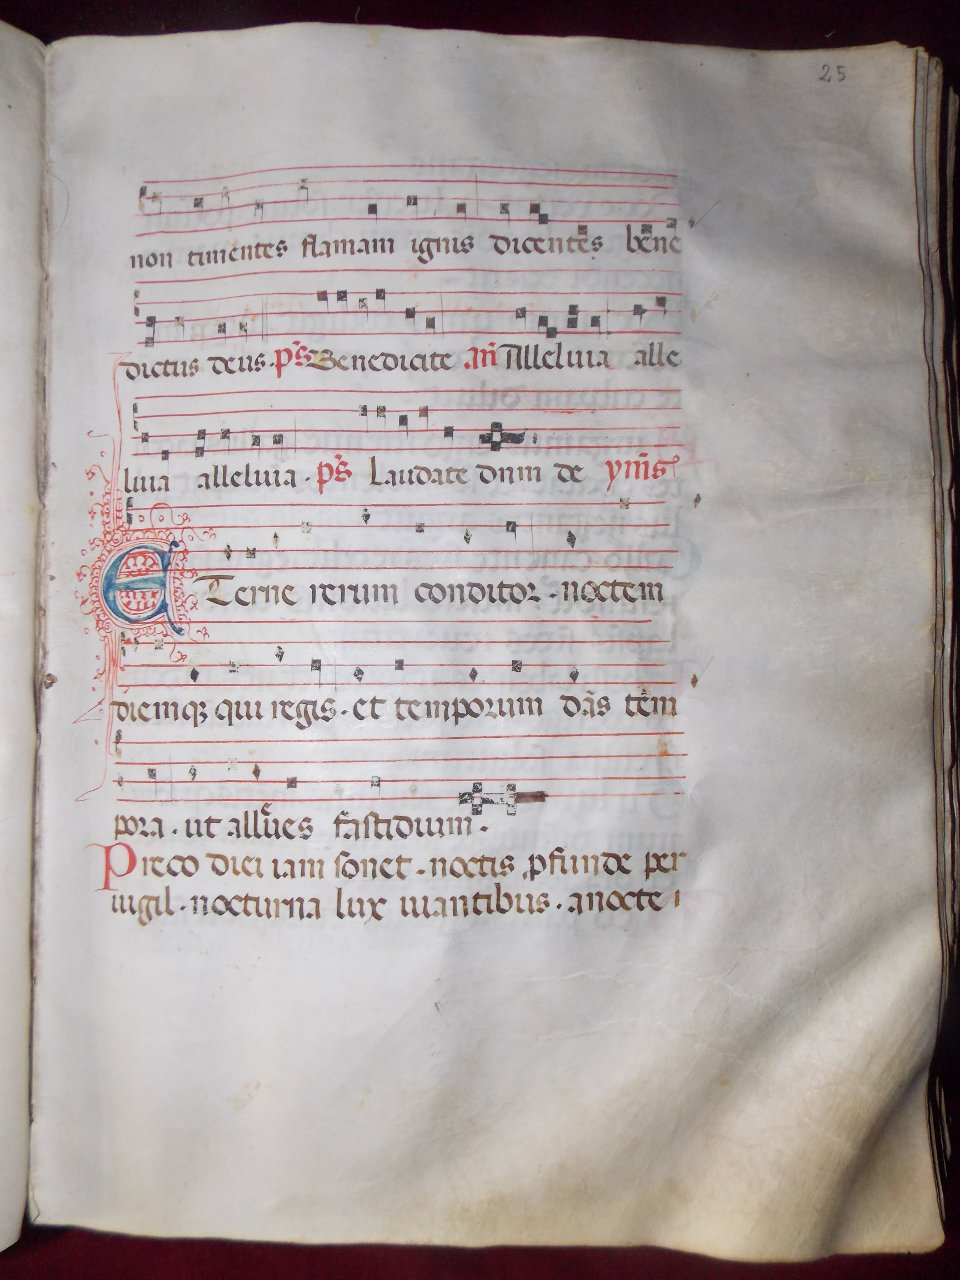 25
non timentes flamam ignis dicentes bene
dictus deus. ps̄ Benedicite an̄ Alleluia alle
luia alleluia. ps̄ Laudate dnm de yms̄
ETerne rerum conditor. noctem
diemqꝫ qui regis. et temporum dās tem
pora. ut alleues fastidium.
Preco diei iam sonet. noctis ꝓfunde per
uigil. nocturna lux uiantibus. a nocte